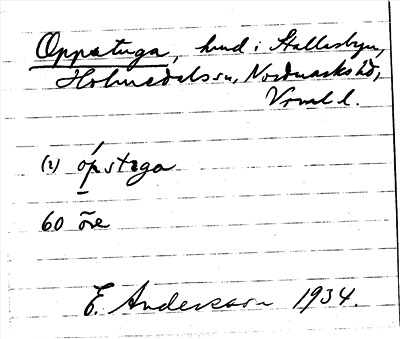 Oppstuga, hmd i Stallesbyn,
Holmedals sn, Nordmarks hd,
Vrml l.
(2) ópstɐga
60 öre
E. Andersson 1934.